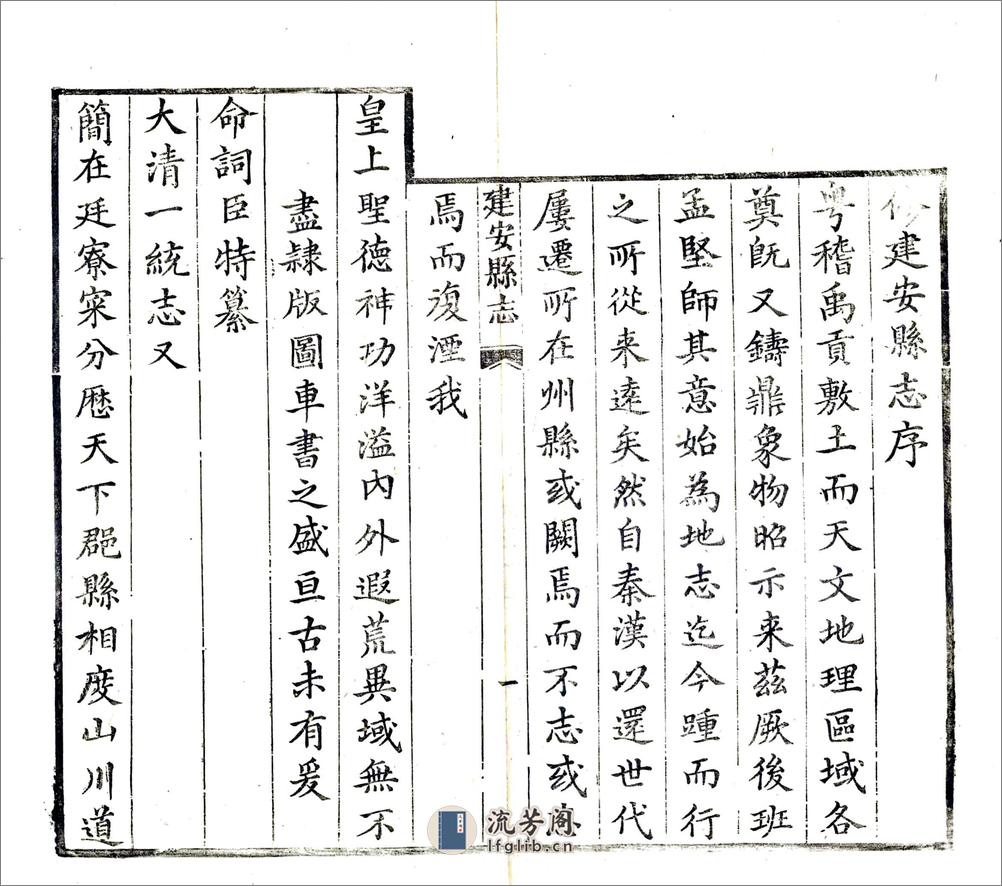 修建安縣志序
粤稽禹貢敷土而天文地理區域各
奠旣又鑄鼎象物昭示来茲厥後班
孟堅師其意始為地志迄今踵而行
之所從来逺矣然自秦漢以還世代
屢遷所在州縣或闕焉而不志或志
建安縣志 一
焉而復湮我
皇上聖德神功洋溢內外遐荒異域無不
盡隷版圖車書之盛亘古未有爰
命詞臣特纂
大清一統志又
簡在廷寮寀分歴天下郡縣相度山川道
流芳阁
lfglib.cn